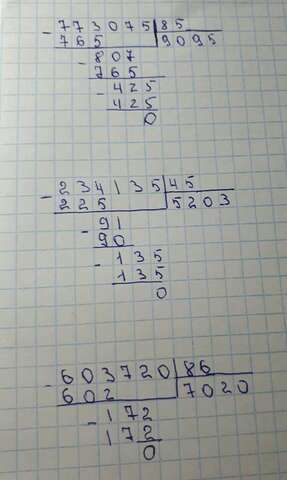 - 773075 | 85
765 | 9095
- 807
765
- 425
425
0
- 234135 | 45
225 | 5203
- 91
90
- 135
135
0
- 603720 | 86
602 | 7020
- 172
172
0